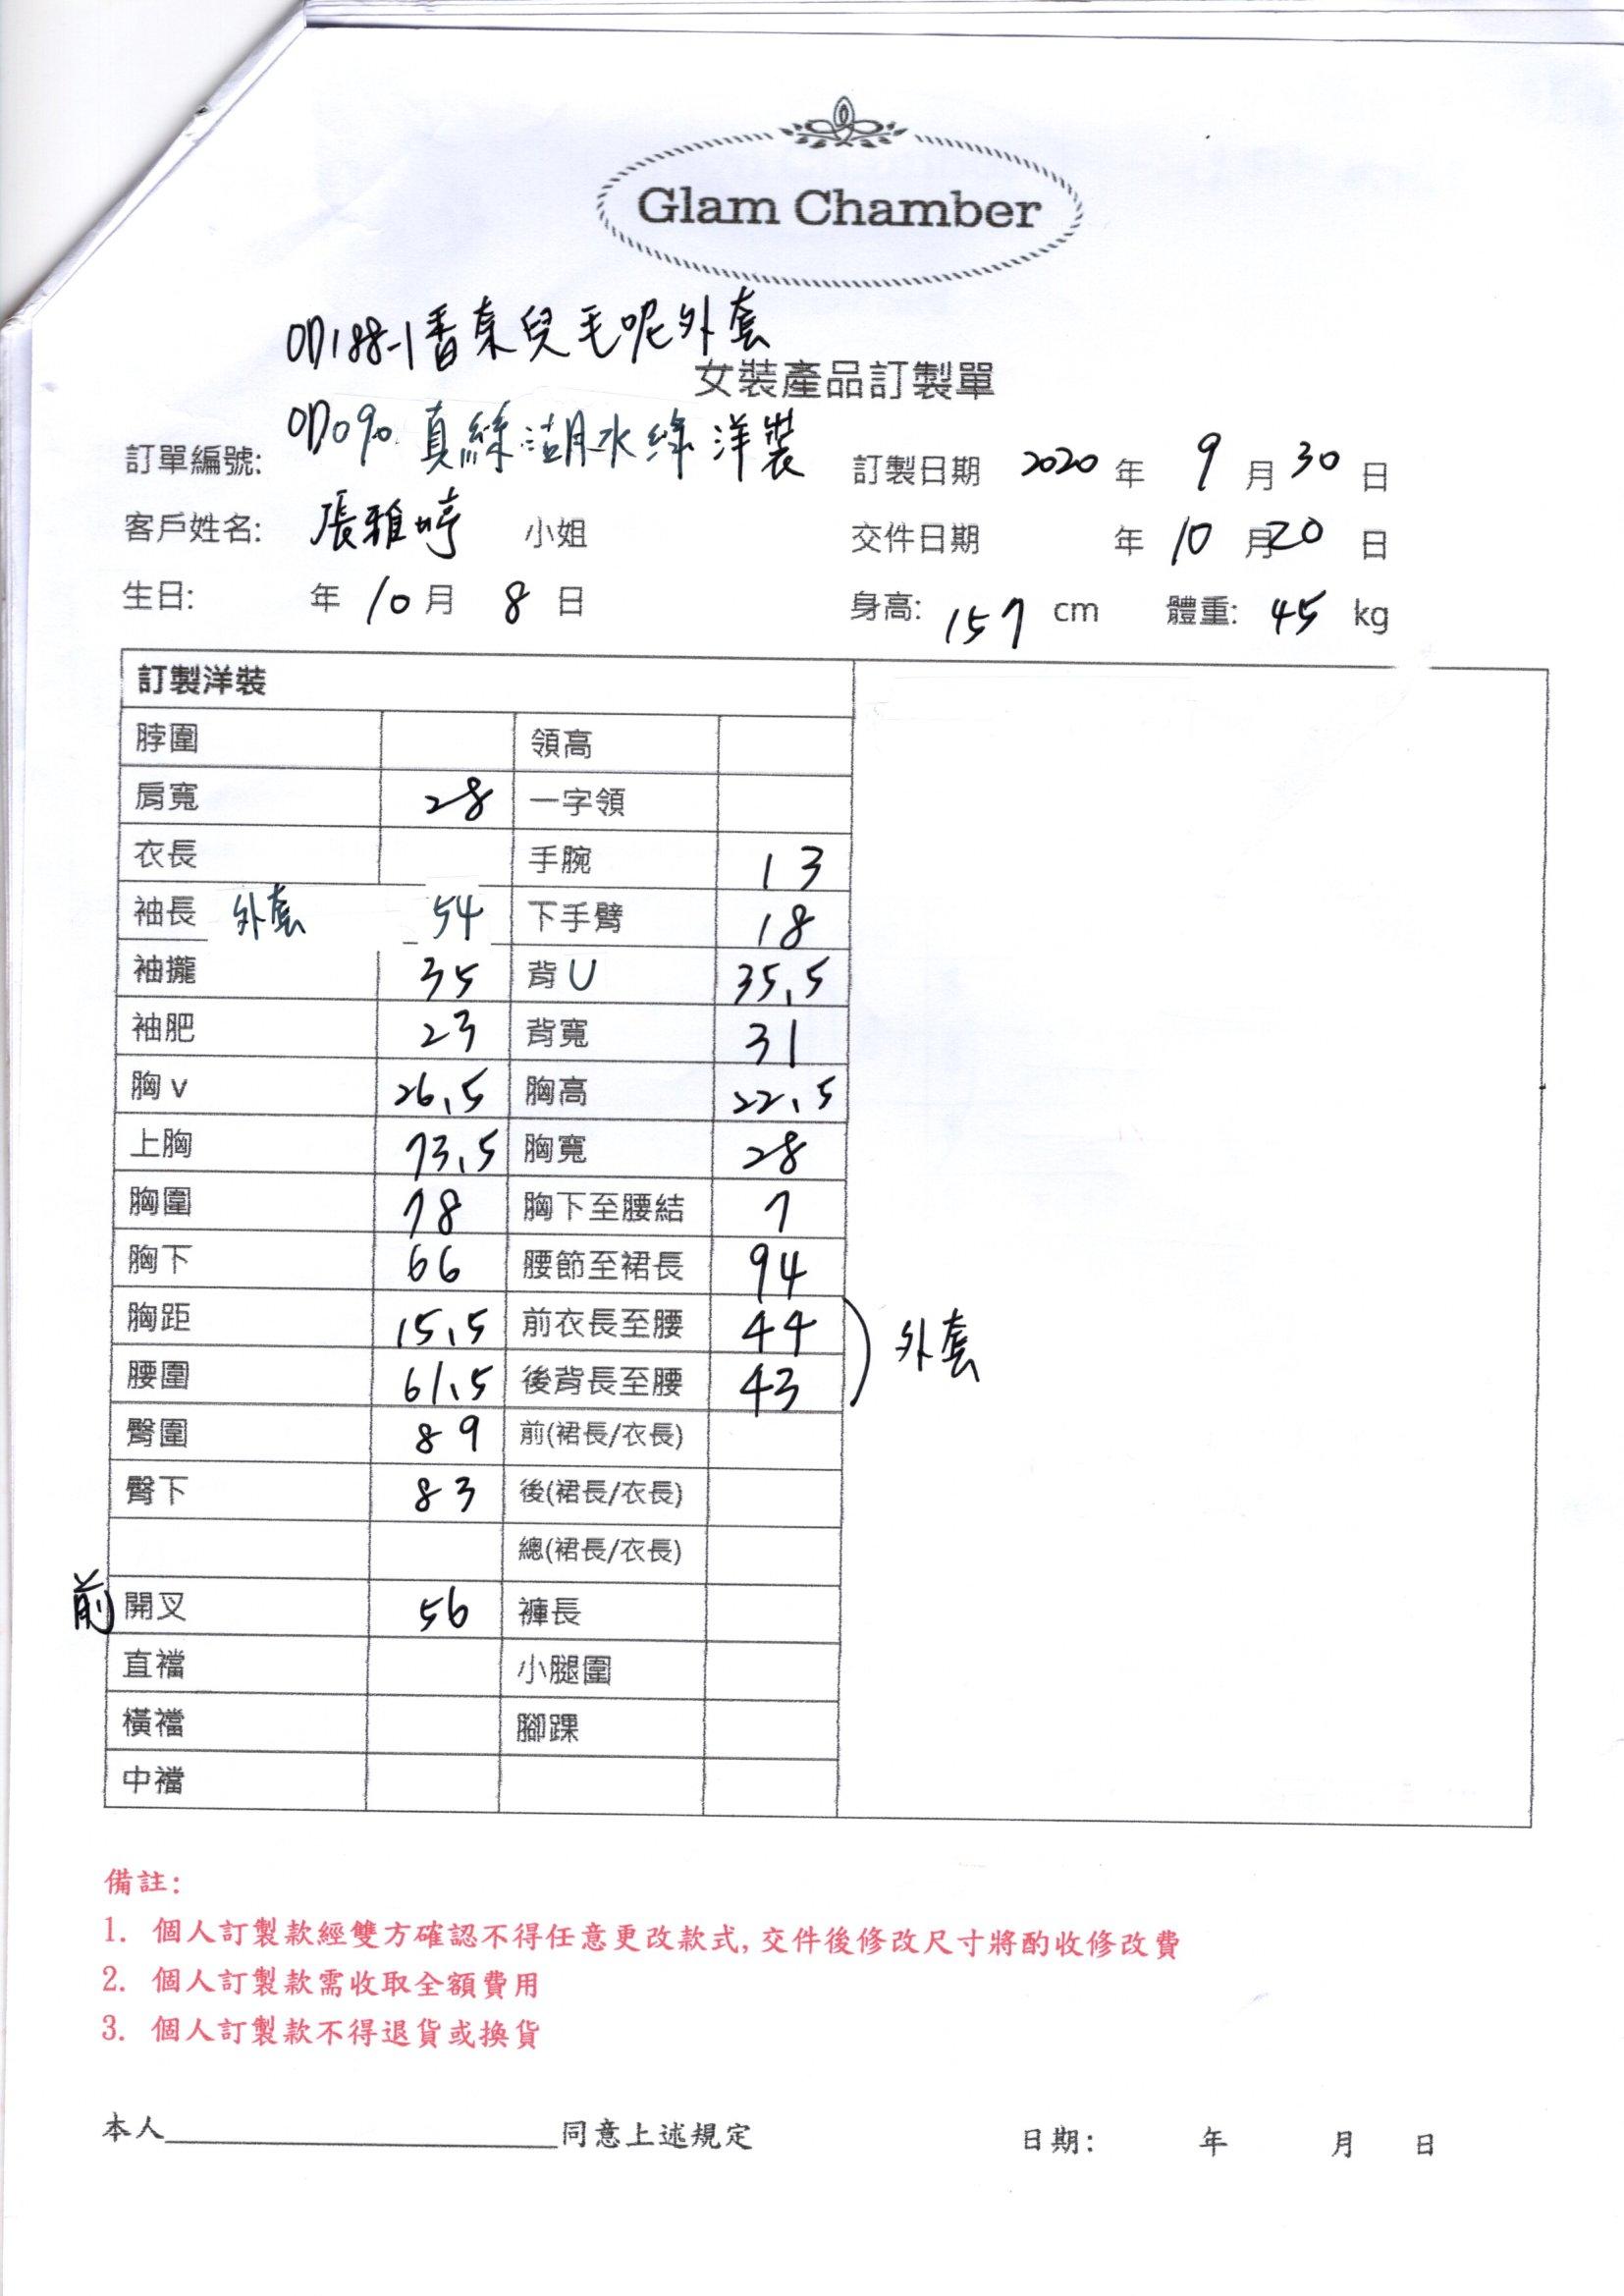 Glam Chamber
OD188-1香奈兒毛呢外套
女裝產品訂製單
OD090 真絲湖水綠洋裝
訂單編號: 訂製日期 2020 年 9 月 30 日
客戶姓名: 張雅婷 小姐 交件日期 年 10 月 20 日
生日: 年 10 月 8 日 身高: 157 cm 體重: 45 kg
訂製洋裝
脖圍 領高
肩寬 28 一字領
衣長 手腕 13
袖長 外套 54 下手臂 18
袖攏 35 背U 35.5
袖肥 23 背寬 31
胸v 26.5 胸高 22.5
上胸 73.5 胸寬 28
胸圍 78 胸下至腰結 7
胸下 66 腰節至裙長 94
胸距 15.5 前衣長至腰 44
外套
腰圍 61.5 後背長至腰 43
臀圍 89 前(裙長/衣長)
臀下 83 後(裙長/衣長)
總(裙長/衣長)
前 開叉 56 褲長
直襠 小腿圍
橫襠 腳踝
中襠
備註:
1. 個人訂製款經雙方確認不得任意更改款式,交件後修改尺寸將酌收修改費
2. 個人訂製款需收取全額費用
3. 個人訂製款不得退貨或換貨
本人____________________同意上述規定 日期: 年 月 日